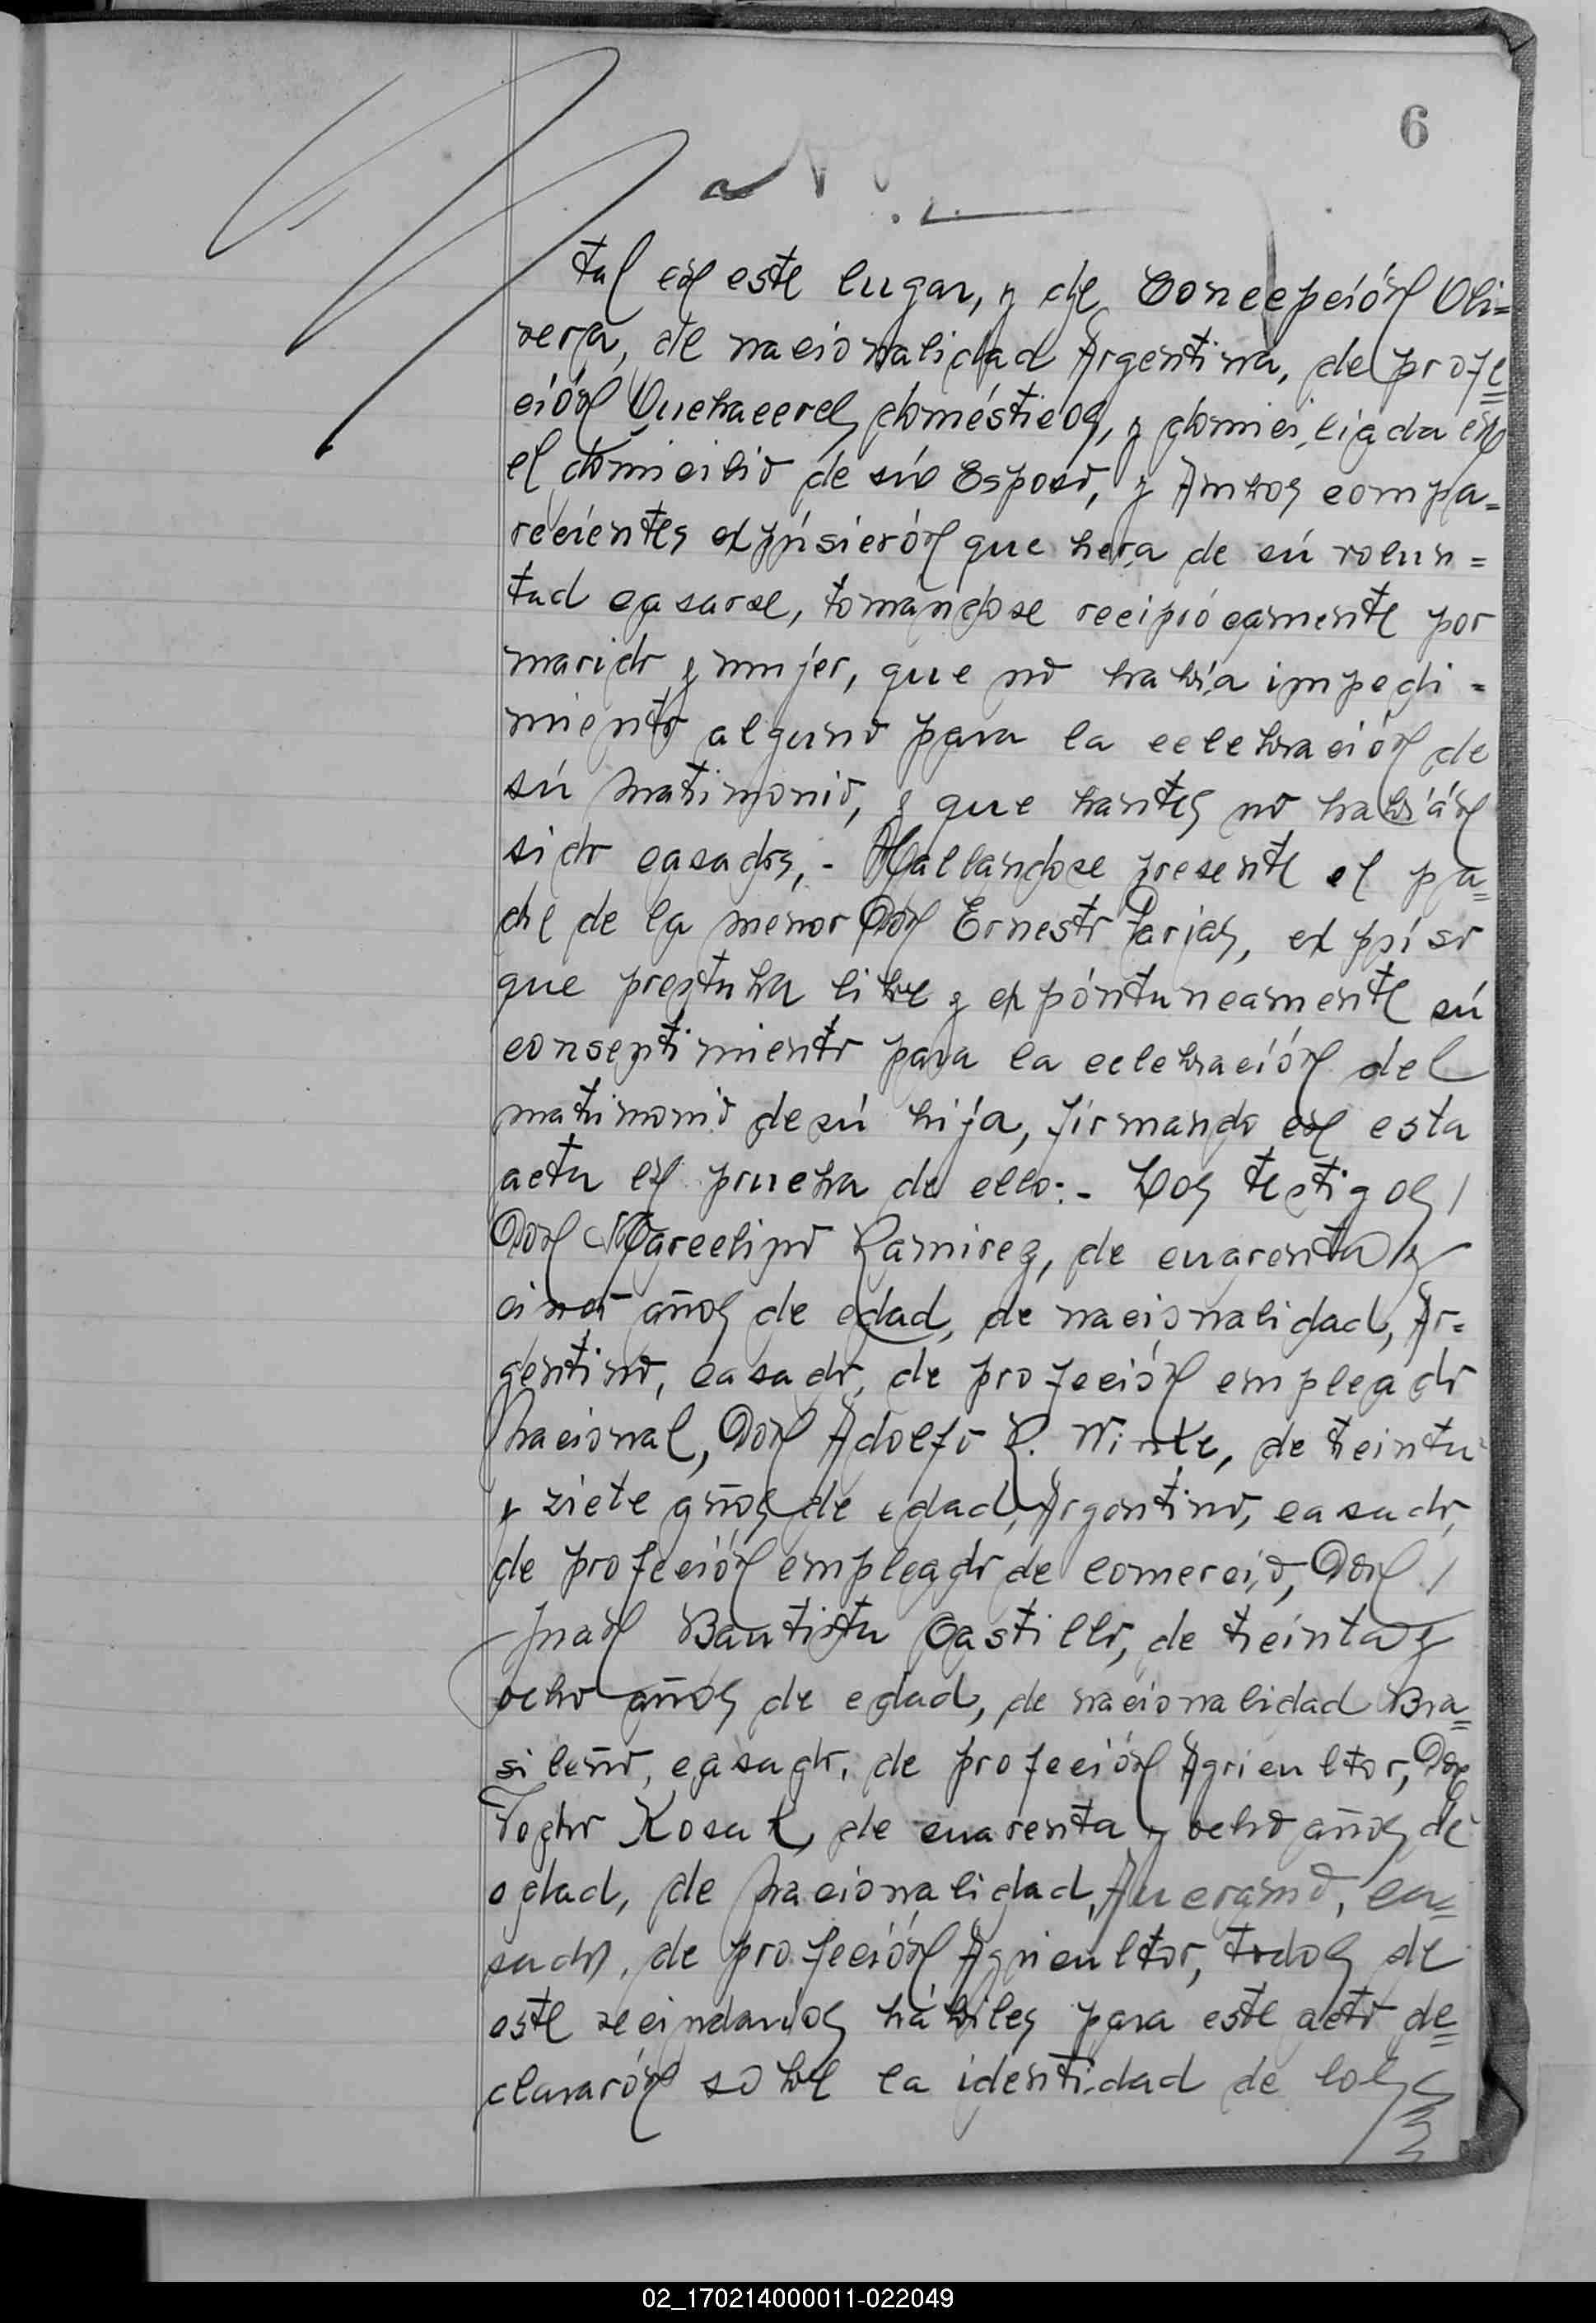 6
tal en este lugar, y de Concepción Oli=
vera, de nacionalidad Argentina, de profe=
ción Quehaceres domésticos, y domiciliada en
el domicilio de sú Esposo, y Ambos compa=
recientes expúsierón que hera de sú volun=
tad casarse, tomandose reciprócamente por
marido y mujer, que no habia impedi=
miento alguno para la celebración de
sú matrimonio, y que hantes no habián
sido casados,- Hallandose presente el pa=
dre de la menor Don Ernesto Farias, expúso
que prestaba libre y expóntaneamente sú
consentimiento para la celebración del
matrimonio de sú hija, firmando en esta
acta en prueba de ello:- Los testigos
Don Marcelino Ramirez, de cuarenta y
cinco años de edad, de nacionalidad, Ar=
gentino, casado, de profeción empleado
Nacional, Don Adolfo R. de treinta
y ziete años de edad, Argentino, casado,
de profeción empleado de comercio, Don
Juan Bautista Castillo, de treinta y
ocho años de edad, de nacionalidad Bra=
sileño, casado, de profeción Agricultor, Don
Kosak, de cuarenta y ocho años de
edad, de nacionalidad, Aucrano, ca=
sado, de profeción Agricultor, todos de
este vecindarios hábiles para este acto de=
clararón sobre la identidad de los
02_170214000011-022049